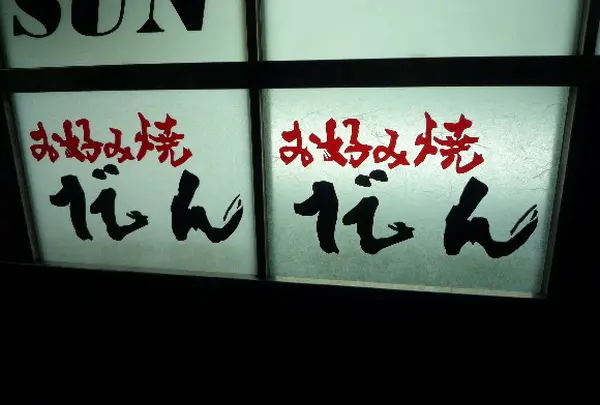 SUN
お好み焼
だん
お好み焼
だん